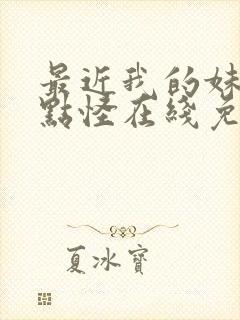 最近我的妹
點怪在綫免
夏冰寶